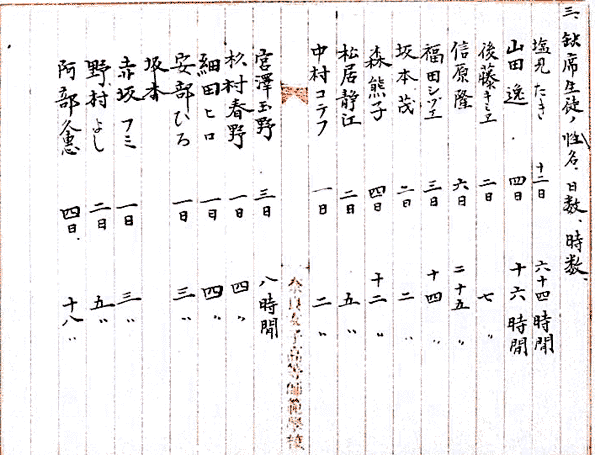 三、缺席生徒ノ姓名、日数、時数、
塩見たき 十二日 六十四時間
山田逸 四日 十六時間
後藤きミヱ 二日 七〃
信原隆 六日 二十五〃
福田シヅヱ 三日 十四〃
坂本茂 二日 二〃
森熊子 四日 十二〃
松居静江 二日 五〃
中村コテフ 一日 二〃
奈良女子高等師範學校
宮澤玉野 三日 八時間
杉村春野 一日 四〃
細田ヒロ 一日 四〃
安部ひろ 一日 三〃
坂本
赤坂フミ 一日 三〃
野村よし 二日 五〃
阿部久恵 四日 十八〃